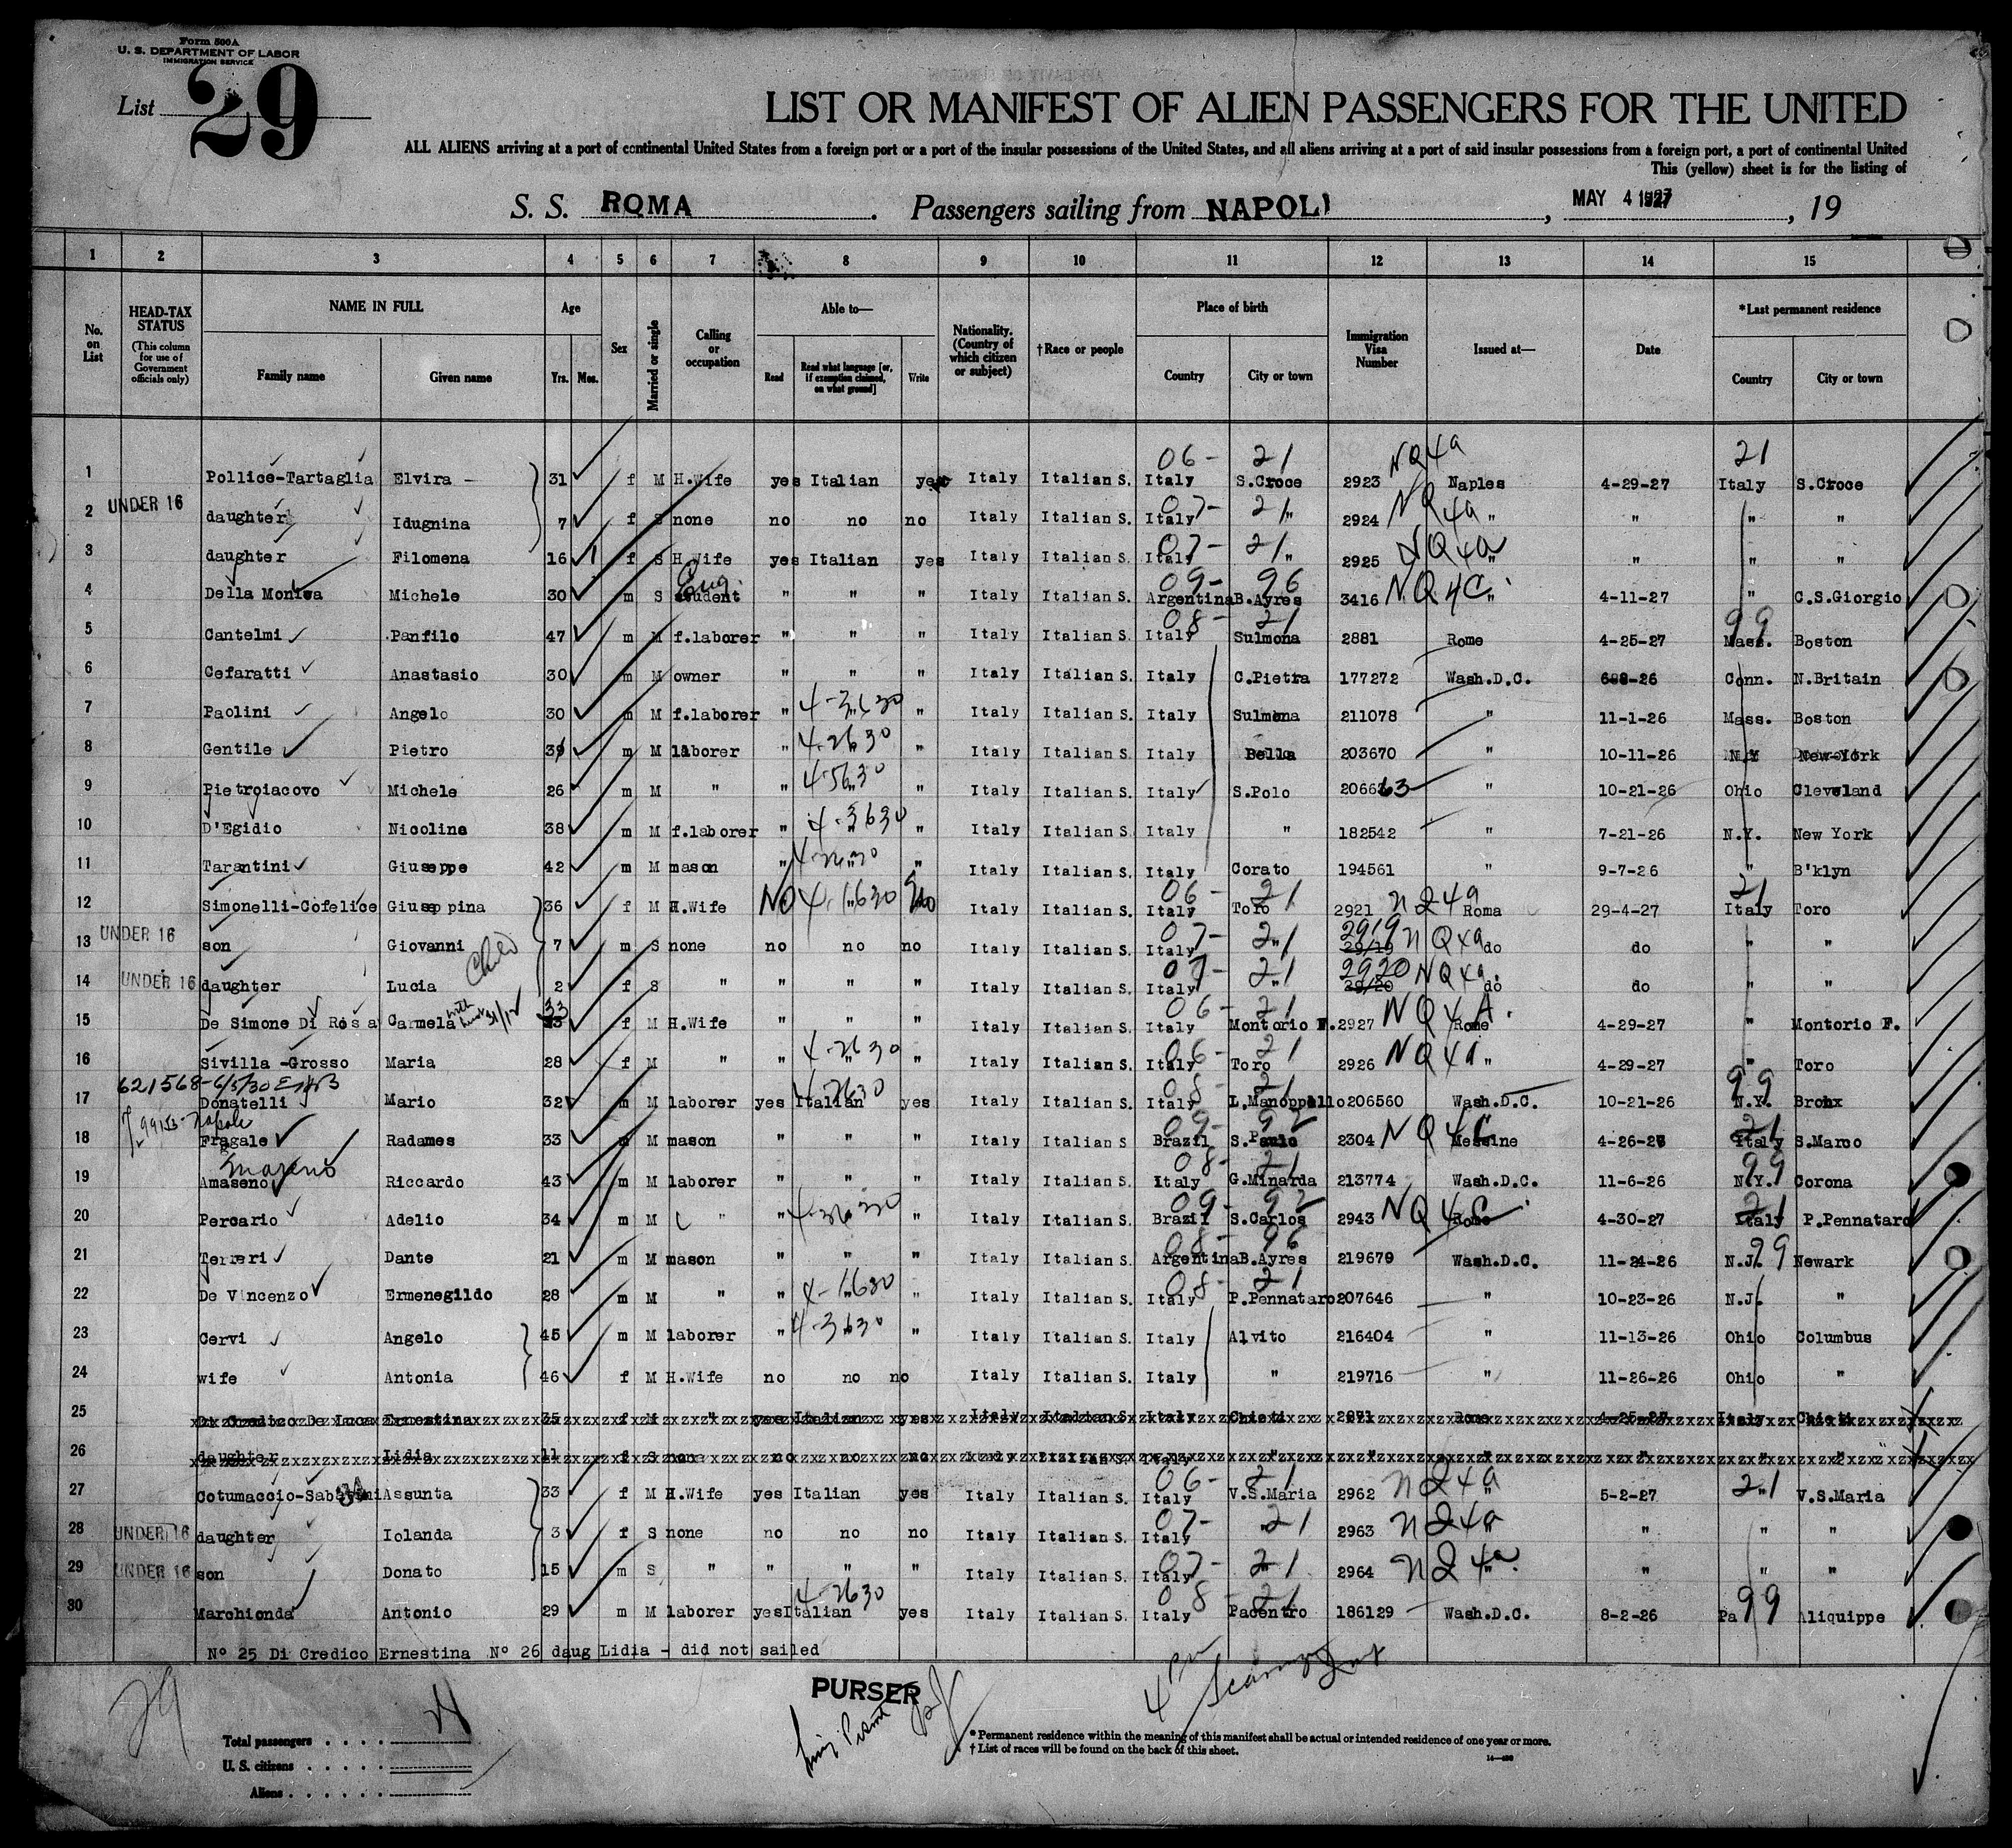 Form 500A
U. S. DEPARTMENT OF LABOR
IMMIGRATION SERVICE
List 29
LIST OR MANIFEST OF ALIEN PASSENGERS FOR THE UNITED
ALL ALIENS arriving at a port of continental United States from a foreign port or a port of the insular possessions of the United States, and all aliens arriving at a port of said insular possessions from a foreign port, a port of continental United
This (yellow) sheet is for the listing of
S. S. ROMA . Passengers sailing from NAPOLI , MAY 4 1927 , 19
1 2 3 4 5 6 7 8 9 10 11 12 13 14 15
No. on List
HEAD-TAX STATUS (This column for use of Government officials only)
NAME IN FULL Family name Given name
Age Yrs. Mos.
Sex
Married or single
Calling or occupation
Able to— Read Read what language [or, if exemption claimed, on what ground] Write
Nationality. (Country of which citizen or subject)
†Race or people
Place of birth Country City or town
Immigration Visa Number
Issued at—
Date
*Last permanent residence Country City or town
06- 21 NQ4a 21
1 Pollice-Tartaglia Elvira - 31 f M H.Wife yes Italian yes Italy Italian S. Italy S.Croce 2923 Naples 4-29-27 Italy S.Croce
2 UNDER 16 daughter Idugnina 7 f S none no no no Italy Italian S. Italy 07- 21 " 2924 NQ4a " " " "
3 daughter Filomena 16 1 f S H.Wife yes Italian yes Italy Italian S. Italy 07- 21 " 2925 NQ4a " " " "
4 Della Monica Michele 30 m S student " " " Italy Italian S. Argentina 09- 96 B.Ayres 3416 NQ4C " 4-11-27 " C.S.Giorgio
5 Cantelmi Panfilo 47 m M f.laborer " " " Italy Italian S. Italy 08- 21 Sulmona 2881 Rome 4-25-27 99 Mass. Boston
6 Cefaratti Anastasio 30 m M owner " " " Italy Italian S. Italy C.Pietra 177272 Wash.D.C. Conn. N.Britain
7 Paolini Angelo 30 m M f.laborer " 4-3630 " " Italy Italian S. Italy Sulmona 211078 " 11-1-26 Mass. Boston
8 Gentile Pietro m M laborer " 4-2630 " " Italy Italian S. Italy Bella 203670 " 10-11-26 N.Y New-York
9 Pietroiacovo Michele 26 m M " " 4-5630 " " Italy Italian S. Italy S.Polo 206663 " 10-21-26 Ohio Cleveland
10 D'Egidio Nicoline 38 m M f.laborer " 4-3630 " " Italy Italian S. Italy " 182542 " 7-21-26 N.Y. New York
11 Tarantini Giuseppe 42 m M mason " " " Italy Italian S. Italy Corato 194561 " 9-7-26 " B'klyn
12 Simonelli-Cofelice Giuseppina 36 f M H.Wife NO 4-1630 No Italy Italian S. Italy 06- 21 Toro 2921 NQ4a Roma 29-4-27 21 Italy Toro
13 UNDER 16 son Giovanni 7 m S none no no no Italy Italian S. Italy 07- 21 " 2919 NQ4a do do " "
14 UNDER 16 daughter Lucia 2 f S " " " " Italy Italian S. Italy 07- 21 " 2920 NQ4a do do " "
15 De Simone Di Rosa Carmela 33 f M H.Wife " " " Italy Italian S. Italy 06- 21 Montorio F. 2927 NQ4A Rome 4-29-27 " Montorio F.
16 Sivilla-Grosso Maria 28 f M " " 4-2630 " " Italy Italian S. Italy 06- 21 Toro 2926 NQ4a " 4-29-27 " Toro
621568-6/5/30
17 Donatelli Mario 32 m M laborer yes Italian 4-2630 yes Italy Italian S. Italy 08- 21 L.Manoppello 206560 Wash.D.C. 10-21-26 99 N.Y. Bronx
18 Fragale Radames 33 m M mason " " " Italy Italian S. Brazil 09- 92 S.Paulo 2304 NQ4C Messine 4-26-27 21 Italy S.Marco
19 Amaseno Riccardo 43 m M laborer " " " Italy Italian S. Italy 08- 21 G.Minarda 213774 Wash.D.C. 11-6-26 99 N.Y. Corona
20 Percario Adelio 34 m M " " " " Italy Italian S. Brazil 09- 92 S.Carlos 2943 NQ4C Rome 4-30-27 21 Italy P.Pennataro
21 Terreri Dante 21 m M mason " " " Italy Italian S. Argentina 08- 96 B.Ayres 219679 Wash.D.C. 11-24-26 N.J. 99 Newark
22 De Vincenzo Ermenegildo 28 m M " " 4-1630 " " Italy Italian S. Italy 08- 21 P.Pennataro 207646 " 10-23-26 N.J. "
23 Cervi Angelo 45 m M laborer " 4-3630 Italy Italian S. Italy Alvito 216404 " 11-13-26 Ohio Columbus
24 wife Antonia 46 f M H.Wife no no no Italy Italian S. Italy " 219716 " 11-26-26 Ohio "
25 Di Credico De Luca Ernestina 35 f M " yes Italian yes Italy Italian S. Italy Chieti Rome 4-25-27 Italy Chieti
26 daughter Lidia 11 f S none no no no Italy Italian S. Italy " " " " " "
27 Cotumaccio- Assunta 33 f M H.Wife yes Italian yes Italy Italian S. Italy 06- 21 V.S.Maria 2962 NQ4a " 5-2-27 21 " V.S.Maria
28 UNDER 16 daughter Iolanda 3 f S none no no no Italy Italian S. Italy 07- 21 " 2963 NQ4a " " " "
29 UNDER 16 son Donato 15 m S " " " " Italy Italian S. Italy 07- 21 " 2964 NQ4a " " " "
30 Marchionda Antonio 29 m M laborer yes Italian 4-2630 yes Italy Italian S. Italy 08- 21 Pacentro 186129 Wash.D.C. 8-2-26 Pa 99 Aliquippe
Nº 25 Di Credico Ernestina Nº 26 daug Lidia - did not sailed
29
PURSER
Total passengers
U. S. citizens
Aliens
* Permanent residence within the meaning of this manifest shall be actual or intended residence of one year or more.
† List of races will be found on the back of this sheet.